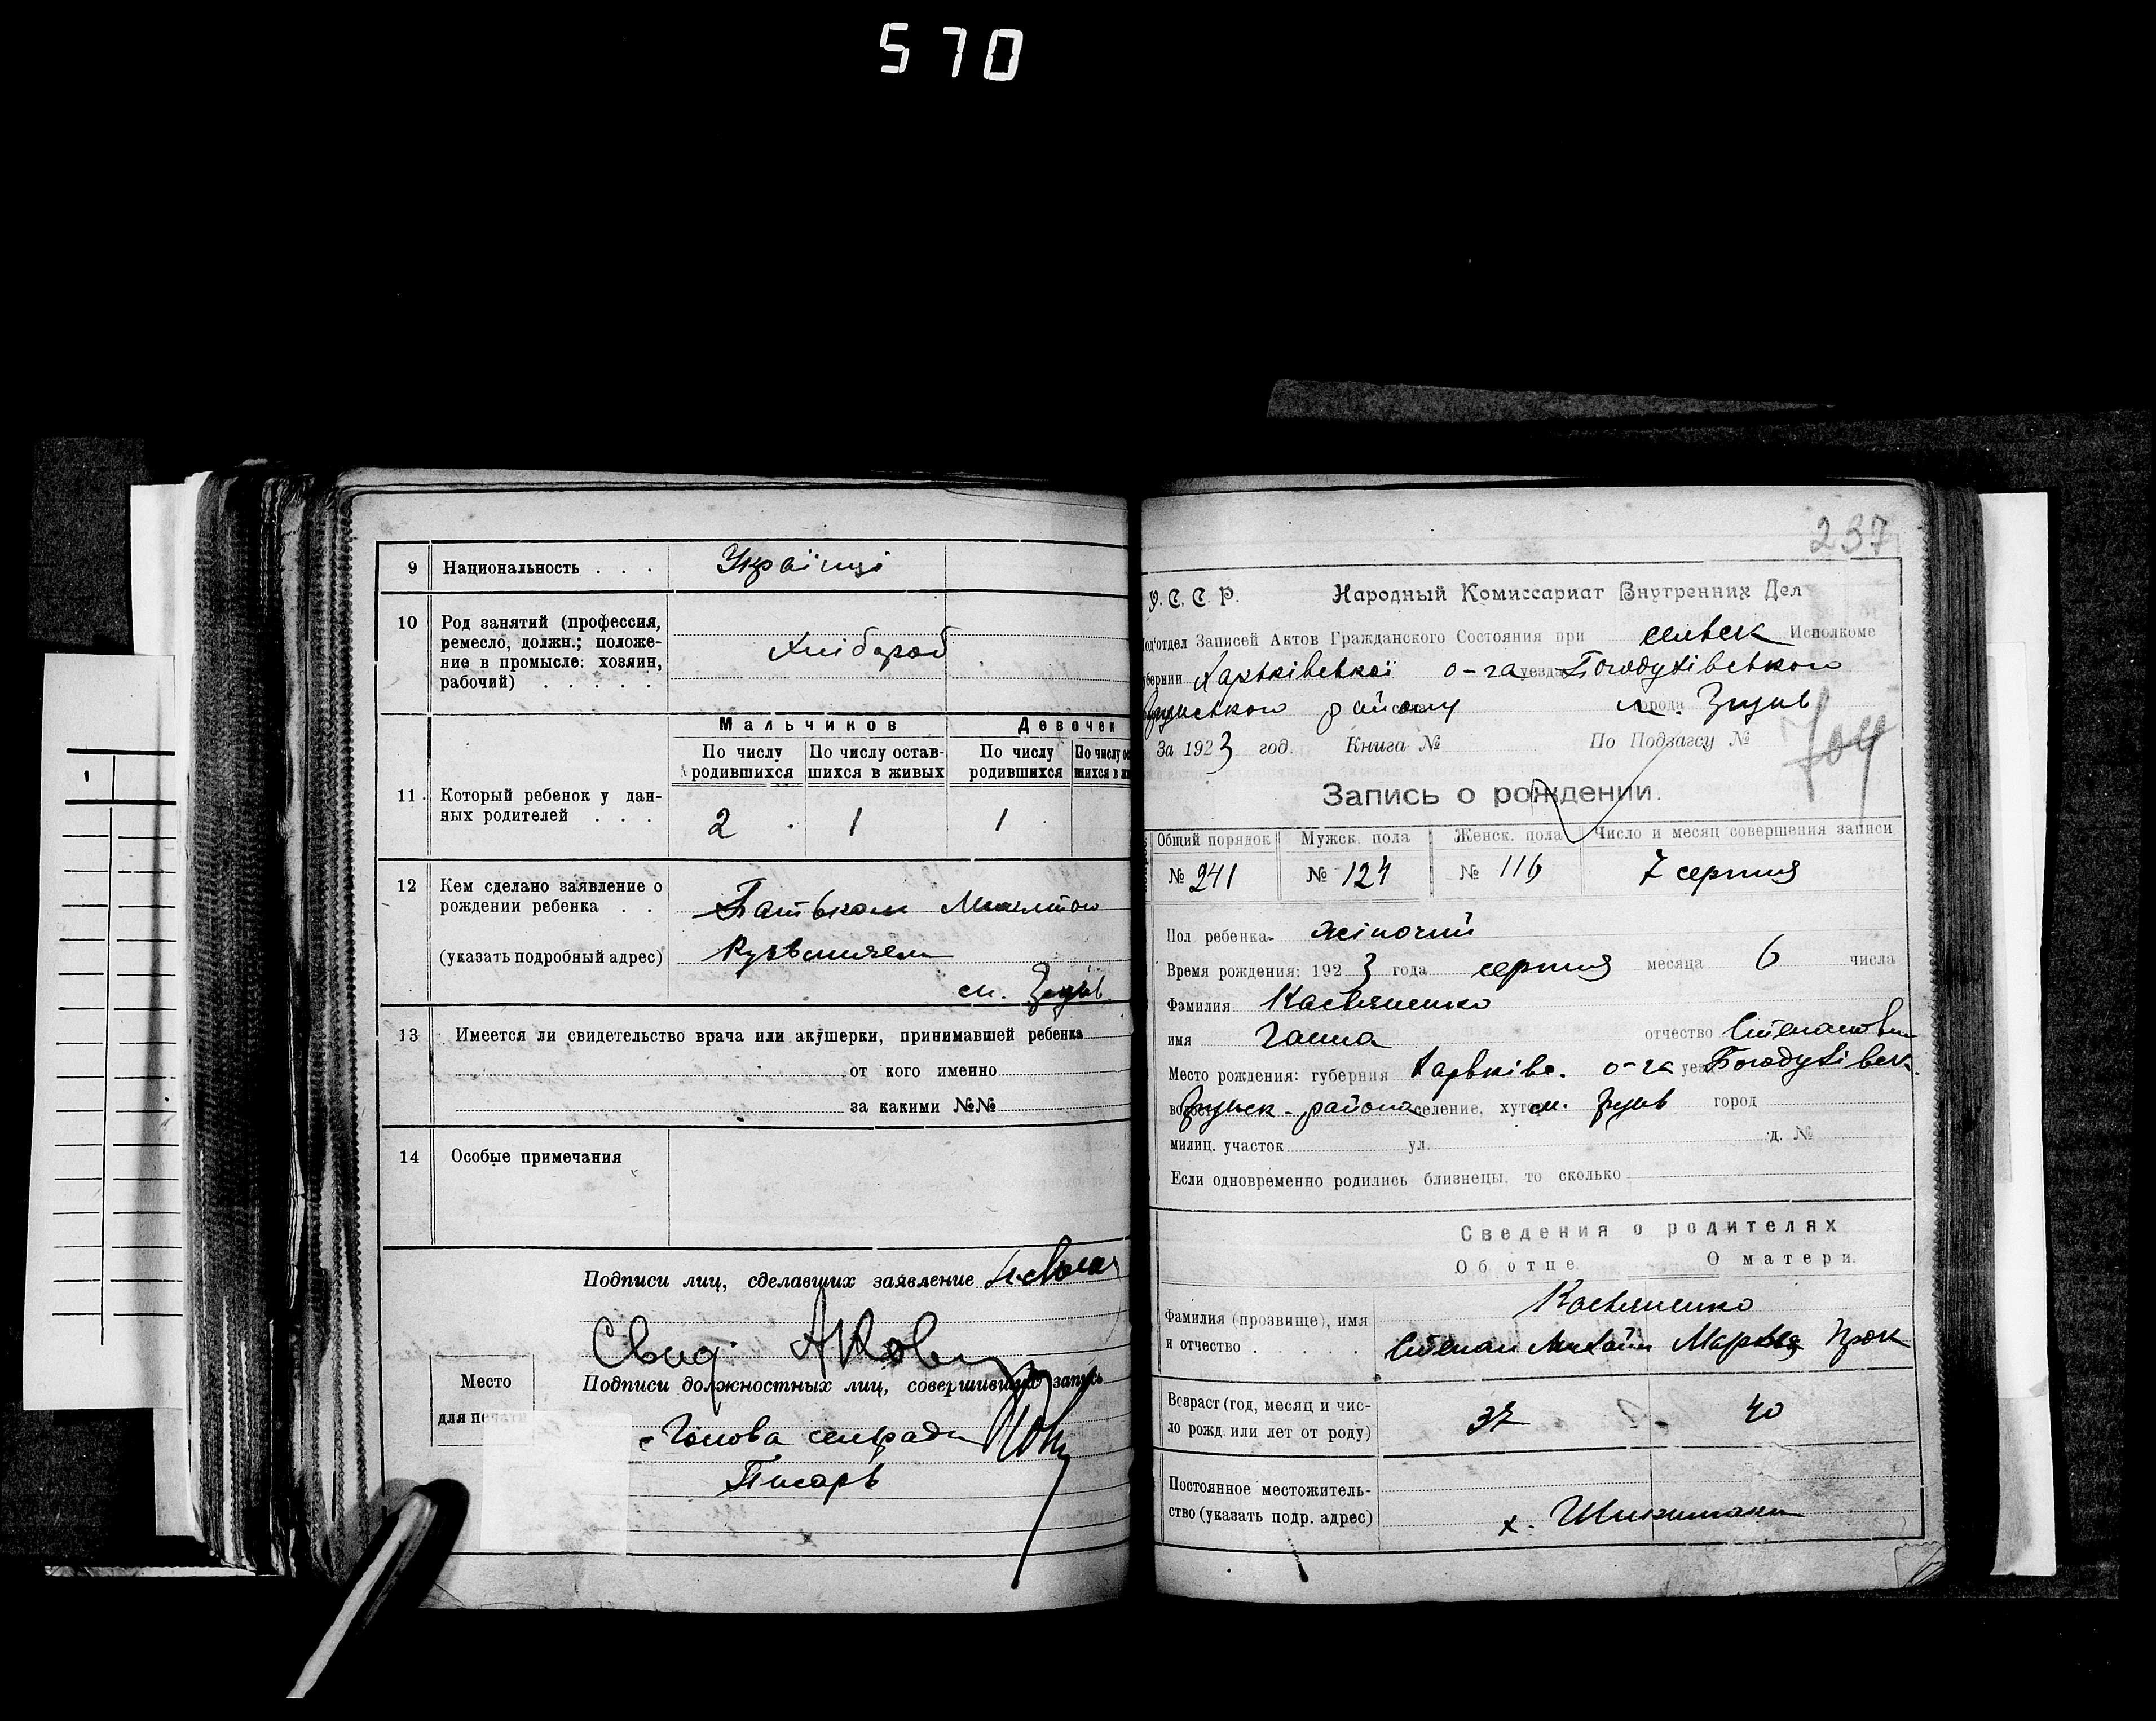 570
9 Национальность . . . Українці
10 Род занятий (профессия,
ремесло, должн.; положе-
ние в промысле: хозяин,
рабочий) . . . . . Хлібороб
Мальчиков Девочек
По числу родившихся По числу остав-шихся в живых По числу родившихся По числу
11 Который ребенок у дан-
ных родителей . . . 2 1 1
12 Кем сделано заявление о
рождении ребенка . . Батьком
(указать подробный адрес)
13 Имеется ли свидетельство врача или акушерки, принимавшей ребенка
от кого именно
за какими №№
14 Особые примечания
Подписи лиц, сделавших заявление
Свид.
Место
для печати
Подписи должностных лиц, совершивших запись
Голова сельради
Писарь
237
У. С. С. Р. Народный Комиссариат Внутренних Дел
Под'отдел Записей Актов Гражданского Состояния при сельск Исполкоме
Харьківської о-га уезда Богодухівського
району города м.
За 1923 год. Книга № По Подзагсу № 704
Запись о рождении.
Общий порядок Мужск. пола Женск. пола Число и месяц совершения записи
№ 241 № 124 № 116 7 серпня
Пол ребенка жіночий
Время рождения: 1923 года серпня месяца 6 числа
Фамилия Касьяненко
имя Ганна отчество Степановна
Место рождения: губерния Харьківс. о-га Богодухівськ.
района селение, город
милиц. участок ул. д. №
Если одновременно родились близнецы, то сколько
Сведения о родителях
Об отце. О матери.
Касьяненко
Фамилия (прозвище), имя
и отчество . . . . Степан Михайл
Возраст (год, месяц и чис-
ло рожд. или лет от роду) 37 40
Постоянное местожитель-
ство (указать подр. адрес) х.